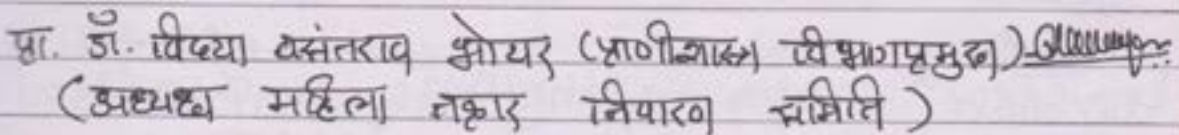 प्रा. डॉ. विद्या वसंतराव भोयर (प्राणीशास्त्र विभागप्रमुख)
(अध्यक्ष महिला तक्रार निवारण समिति)